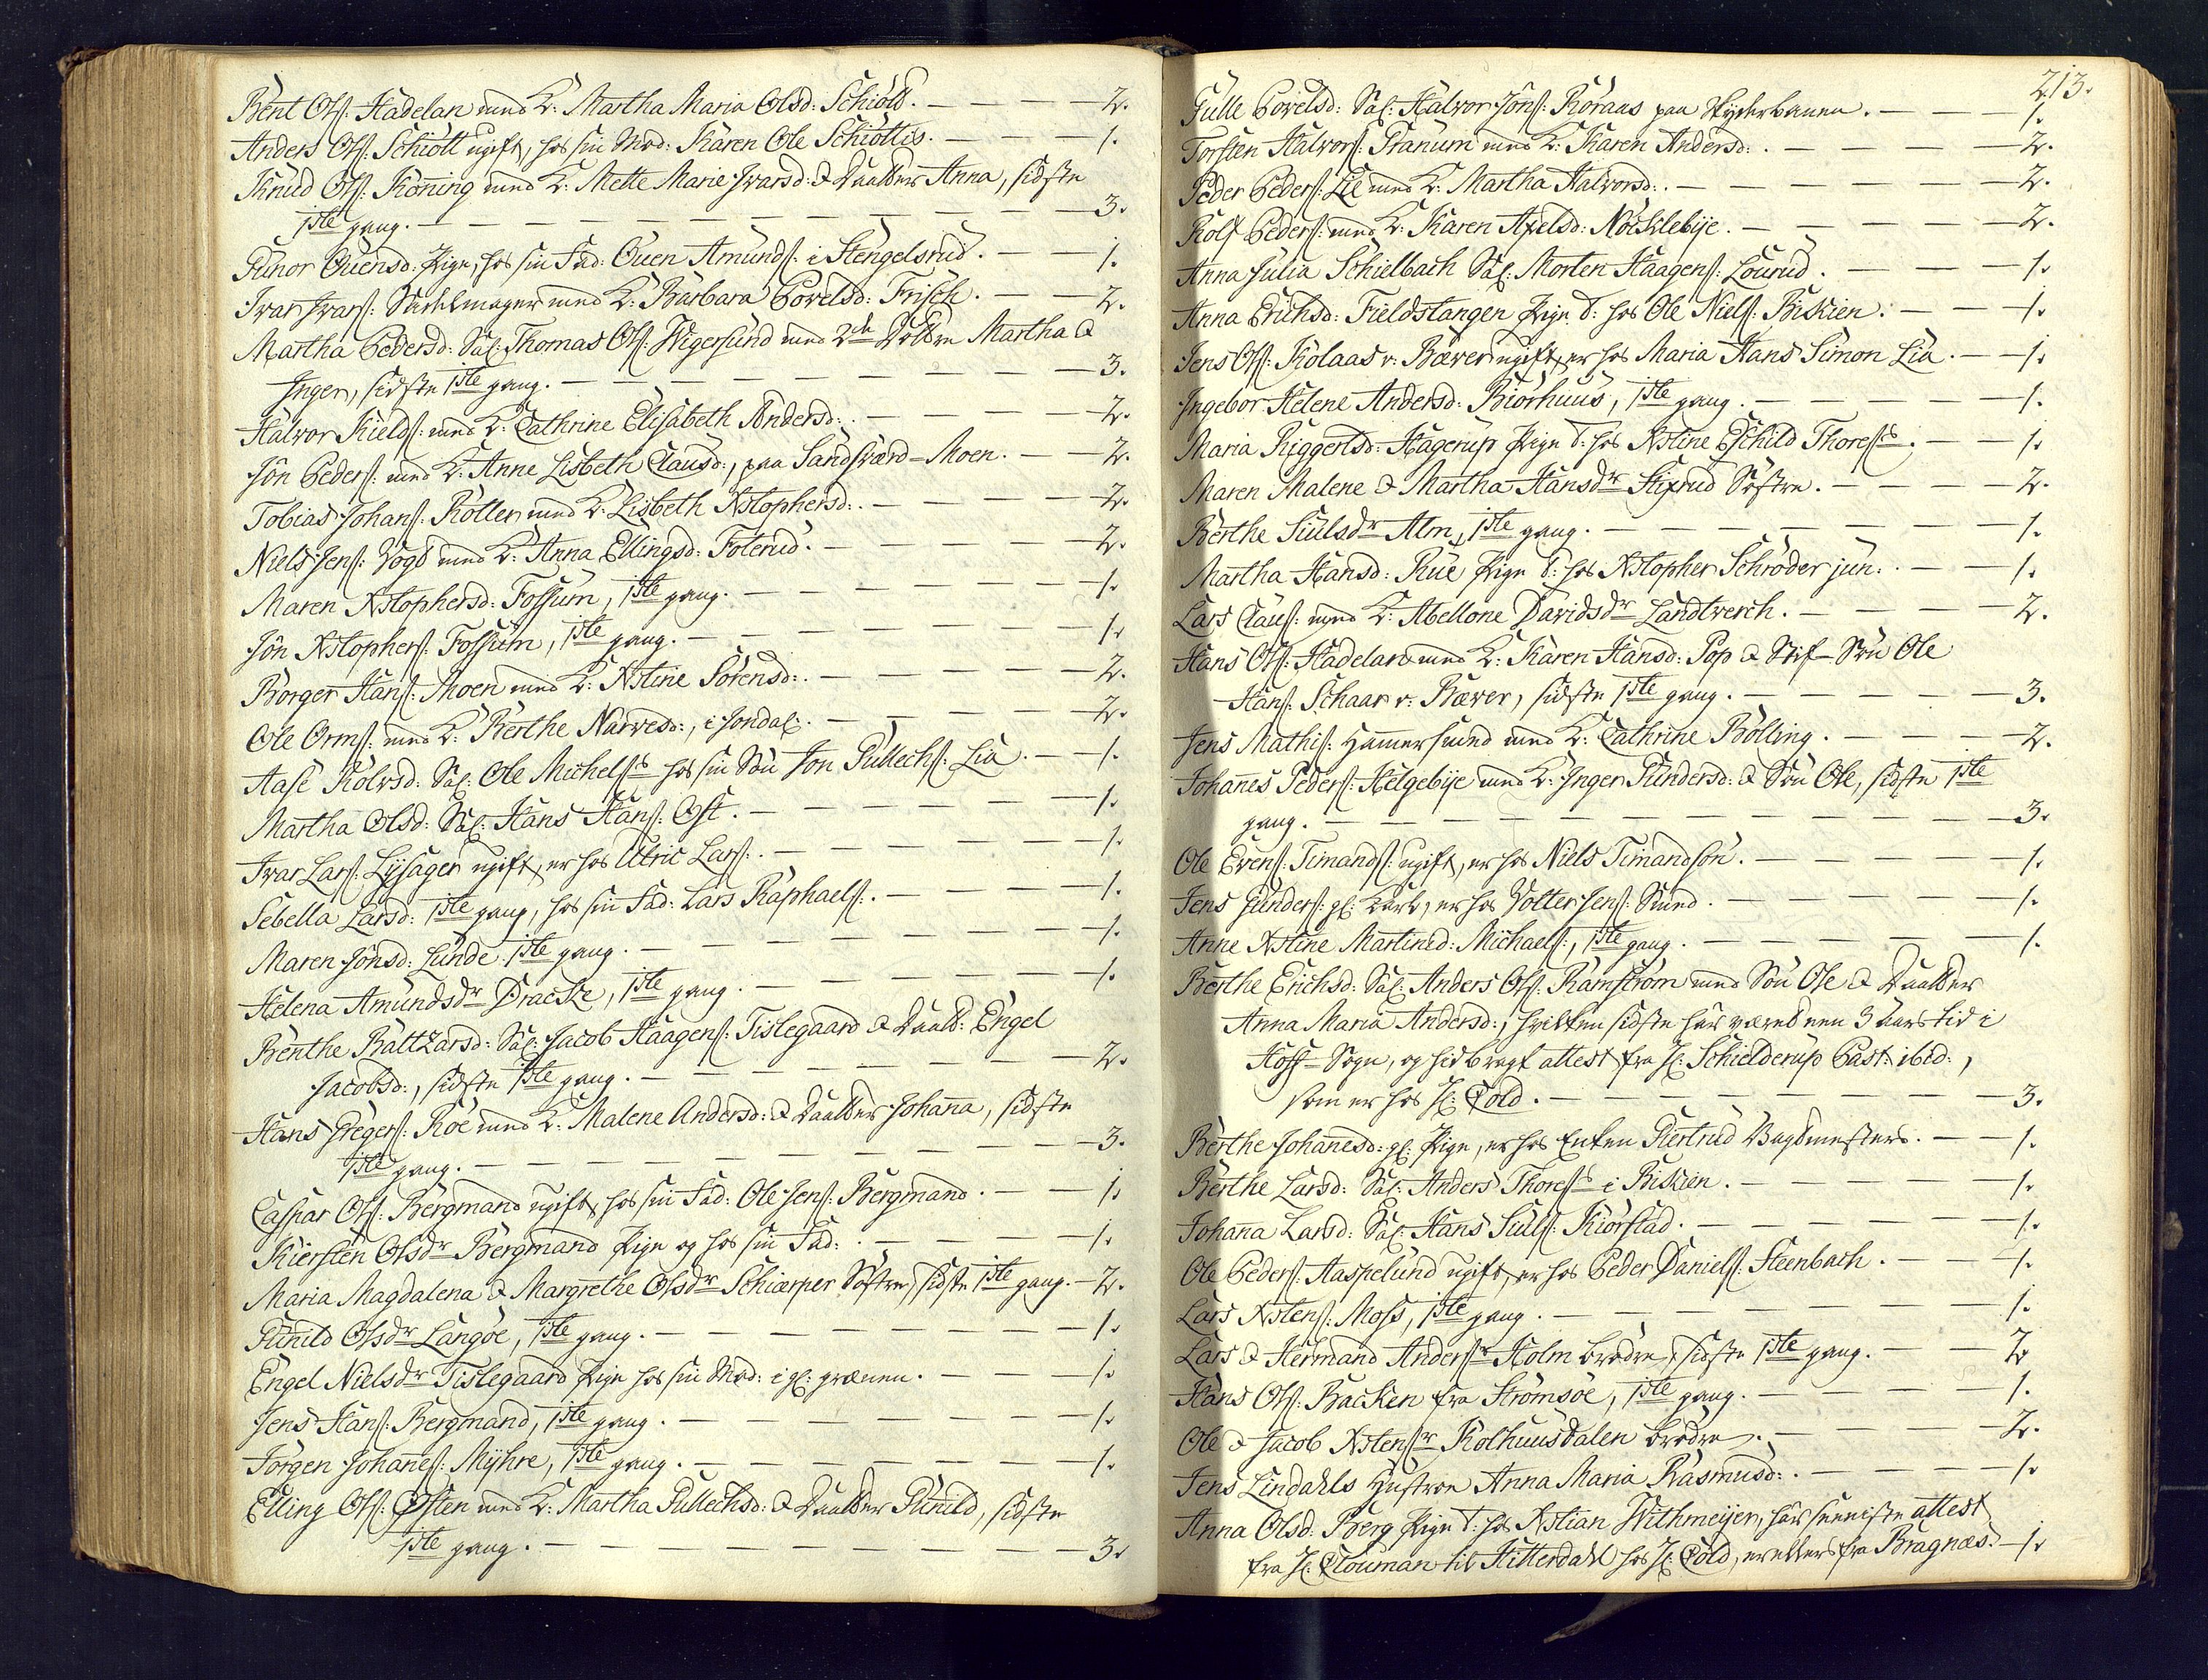 Bent Ols: Hadelan med K: Martha Maria Olsd: Schiött. — — — — 2.
Anders Ols: Schiött ugift, hos sin Mod: Karen Ole Schiöttis. — — — 1.
Knud Ols: Köning med K: Mette Marie Ivarsd: & Daatter Anna, sidste
1ste gang. — — — — — — — — — 3.
Gunor Ouensd: Pige, hos sin Fad: Ouen Amunds: i Stengelsrud. — — 1.
Ivar Ivars: Sadelmager med K: Barbara Povelsd: Frisch. — — 2.
Martha Pedersd: Sal: Thomas Ols: Wigersund med 2de Döttre Martha &
Inger, sidste 1ste gang. — — — — — — — 3.
Halvor Kields: med K: Cathrine Elisabeth Andersd: — — — — 2.
Jön Peders: med K: Anne Lisbeth Clausd:, paa Sandsværd-Moen. — — 2.
Tobias Johans: Rotter med K: Lisbeth Xstophersd:. — — — — 2.
Niels Jens: Vogd med K: Anna Ellingsd: Foterud. — — — — 2.
Maren Xstophersd: Fossum, 1ste gang. — — — — — 1.
Jön Xstophers: Fossum, 1ste gang. — — — — — 1.
Borger Hans: Moen med K: Xstine Sörensd:. — — — — 2.
Ole Orms: med K: Berthe Narvesd:, i Jondal:. — — — — 2.
Aase Rolvsd: Sal: Ole Michels hos sin Sön Jon Gullechs: Lia. — 1.
Martha Olsd: Sal: Hans Hans: Ost. — — — — — 1.
Ivar Lars: Lysager ugift, er hos Ulric Lars:. — — — — 1.
Sebella Larsd: 1ste gang, hos sin Fad: Lars Raphaels:. — — — — 1.
Maren Jönsd: Lunde 1ste gang. — — — — — 1.
Helena Amundsdr Dracke, 1ste gang. — — — — 1.
Benthe Baltzarsd: Sal: Jacob Haagens: Tislegaard & Daatt: Engel
Jacobsd:, sidste 1ste gang. — — — — — — 2.
Hans Gregers: Röe med K: Malene Andersd: & Daatter Johanna, sidste
1ste gang. — — — — — — — — 3.
Caspar Ols: Bergmand ugift, hos sin Fad: Ole Jens: Bergmand. — — 1.
Kiersten Olsdr Bergmand Pige og hos sin Fad:. — — — — 1.
Maria Magdalena & Margrethe Olsdr Schiærper Söstre, sidste 1ste gang. — 2.
Gunild Olsdr Langöe, 1ste gang. — — — — — — 1.
Engel Nielsdr Tislegaard Pige hos sin Mod: i gl: grænen. — — — 1.
Jens Hans: Bergmand, 1ste gang. — — — — — — 1.
Jörgen Johannes: Myhre, 1ste gang. — — — — — — 1.
Elling Ols: Østen med K: Martha Gullechsd: & Daatter Gunild, sidste
1ste gang. — — — — — — — — 3.
213.
Gulle Povelsd: Sal: Halvor Jöns: Röraas paa Skyderbanen. — — — 1.
Torsten Halvors: Granum med K: Karen Andersd:. — — — — 2.
Peder Peders: Lie med K: Martha Halvorsd:. — — — — — 2.
Rolf Peders: med K: Karen Axelsd: Nöcklebye. — — — — 2.
Anna Julia Schielbach Sal: Morten Haagens: Lourud. — — — 1.
Anna Erichsd: Fieldstangen Pige t: hos Ole Niels: Biskien. — — 1.
Jens Ols: Kolaas v: Bæver ugift, er hos Maria Hans Simon Lia. — 1.
Ingebor Helene Andersd: Biörhuus, 1ste gang. — — — — 1.
Maria Riggertsd: Hagerup Pige t: hos Xstine Eschild Thores. — — 1.
Maren Malene & Martha Hansdr Stixrud Söstre. — — — — 2.
Berthe Siulsdr Alm, 1ste gang. — — — — — — 1.
Martha Hansd: Rue Pige t: hos Xstopher Schröder jun:. — — 1.
Lars Claus: med K: Abellone Davidsdr Landtverch. — — — — 2.
Hans Ols: Hadelan med K: Karen Hansd: Pop & Stif-Sön Ole
Hans: Schaar v: Bæver, sidste 1ste gang. — — — — — 3.
Jens Mathis: Hamersund med K: Cathrine Bölling. — — — — 2.
Johannes Peders: Helgebye med K: Inger Gundersd: & Sön Ole, sidste 1ste
gang. — — — — — — — — — — 3.
Ole Evens: Timands: ugift, er hos Niels Timandsön. — — — — 1.
Jens Gunders: gl: Karl, er hos Volter Jens: Sund. — — — — 1.
Anne Xstine Martined: Michaels:, 1ste gang. — — — — — 1.
Berthe Erichsd: Sal: Anders Ols: Ramström med Sön Ole & Daatter
Anna Maria Andersd:, hvilken sidste har været nen 3 aars tid i
Hoff-Sogn, og hidbragt attest fra H: Schielderup Past: ibid:,
som er hos H: Cold. — — — — — — — 3.
Berthe Johanesd: gl: Pige, er hos Enken Giertrud Bagdmesters. — — 1.
Berthe Larsd: Sal: Anders Thores i Biskien. — — — — 1.
Johana Larsd: Sal: Hans Siuls: Kiörstad. — — — — — 1.
Ole Peders: Aaspelund ugift, er hos Peder Daniels: Steenbach. — — 1.
Lars Xstens: Moss, 1ste gang. — — — — — — 1.
Lars & Hermand Andersr Holm brödre, sidste 1ste gang. — — 2.
Hans Ols: Backen fra Strömsöe, 1ste gang. — — — — — 1.
Ole & Jacob Xstensr Kolhuusdalen brödre. — — — — 2.
Jens Lindahls Hustroe Anna Maria Rasmusd:. — — — — 1.
Anna Olsd: Berg Pige t: hos Xstian Withmeyer, har seeniste attest
fra H: Clouman til Hitterdahl hos H: Cold, er ellers fra Bragnæs. — 1.